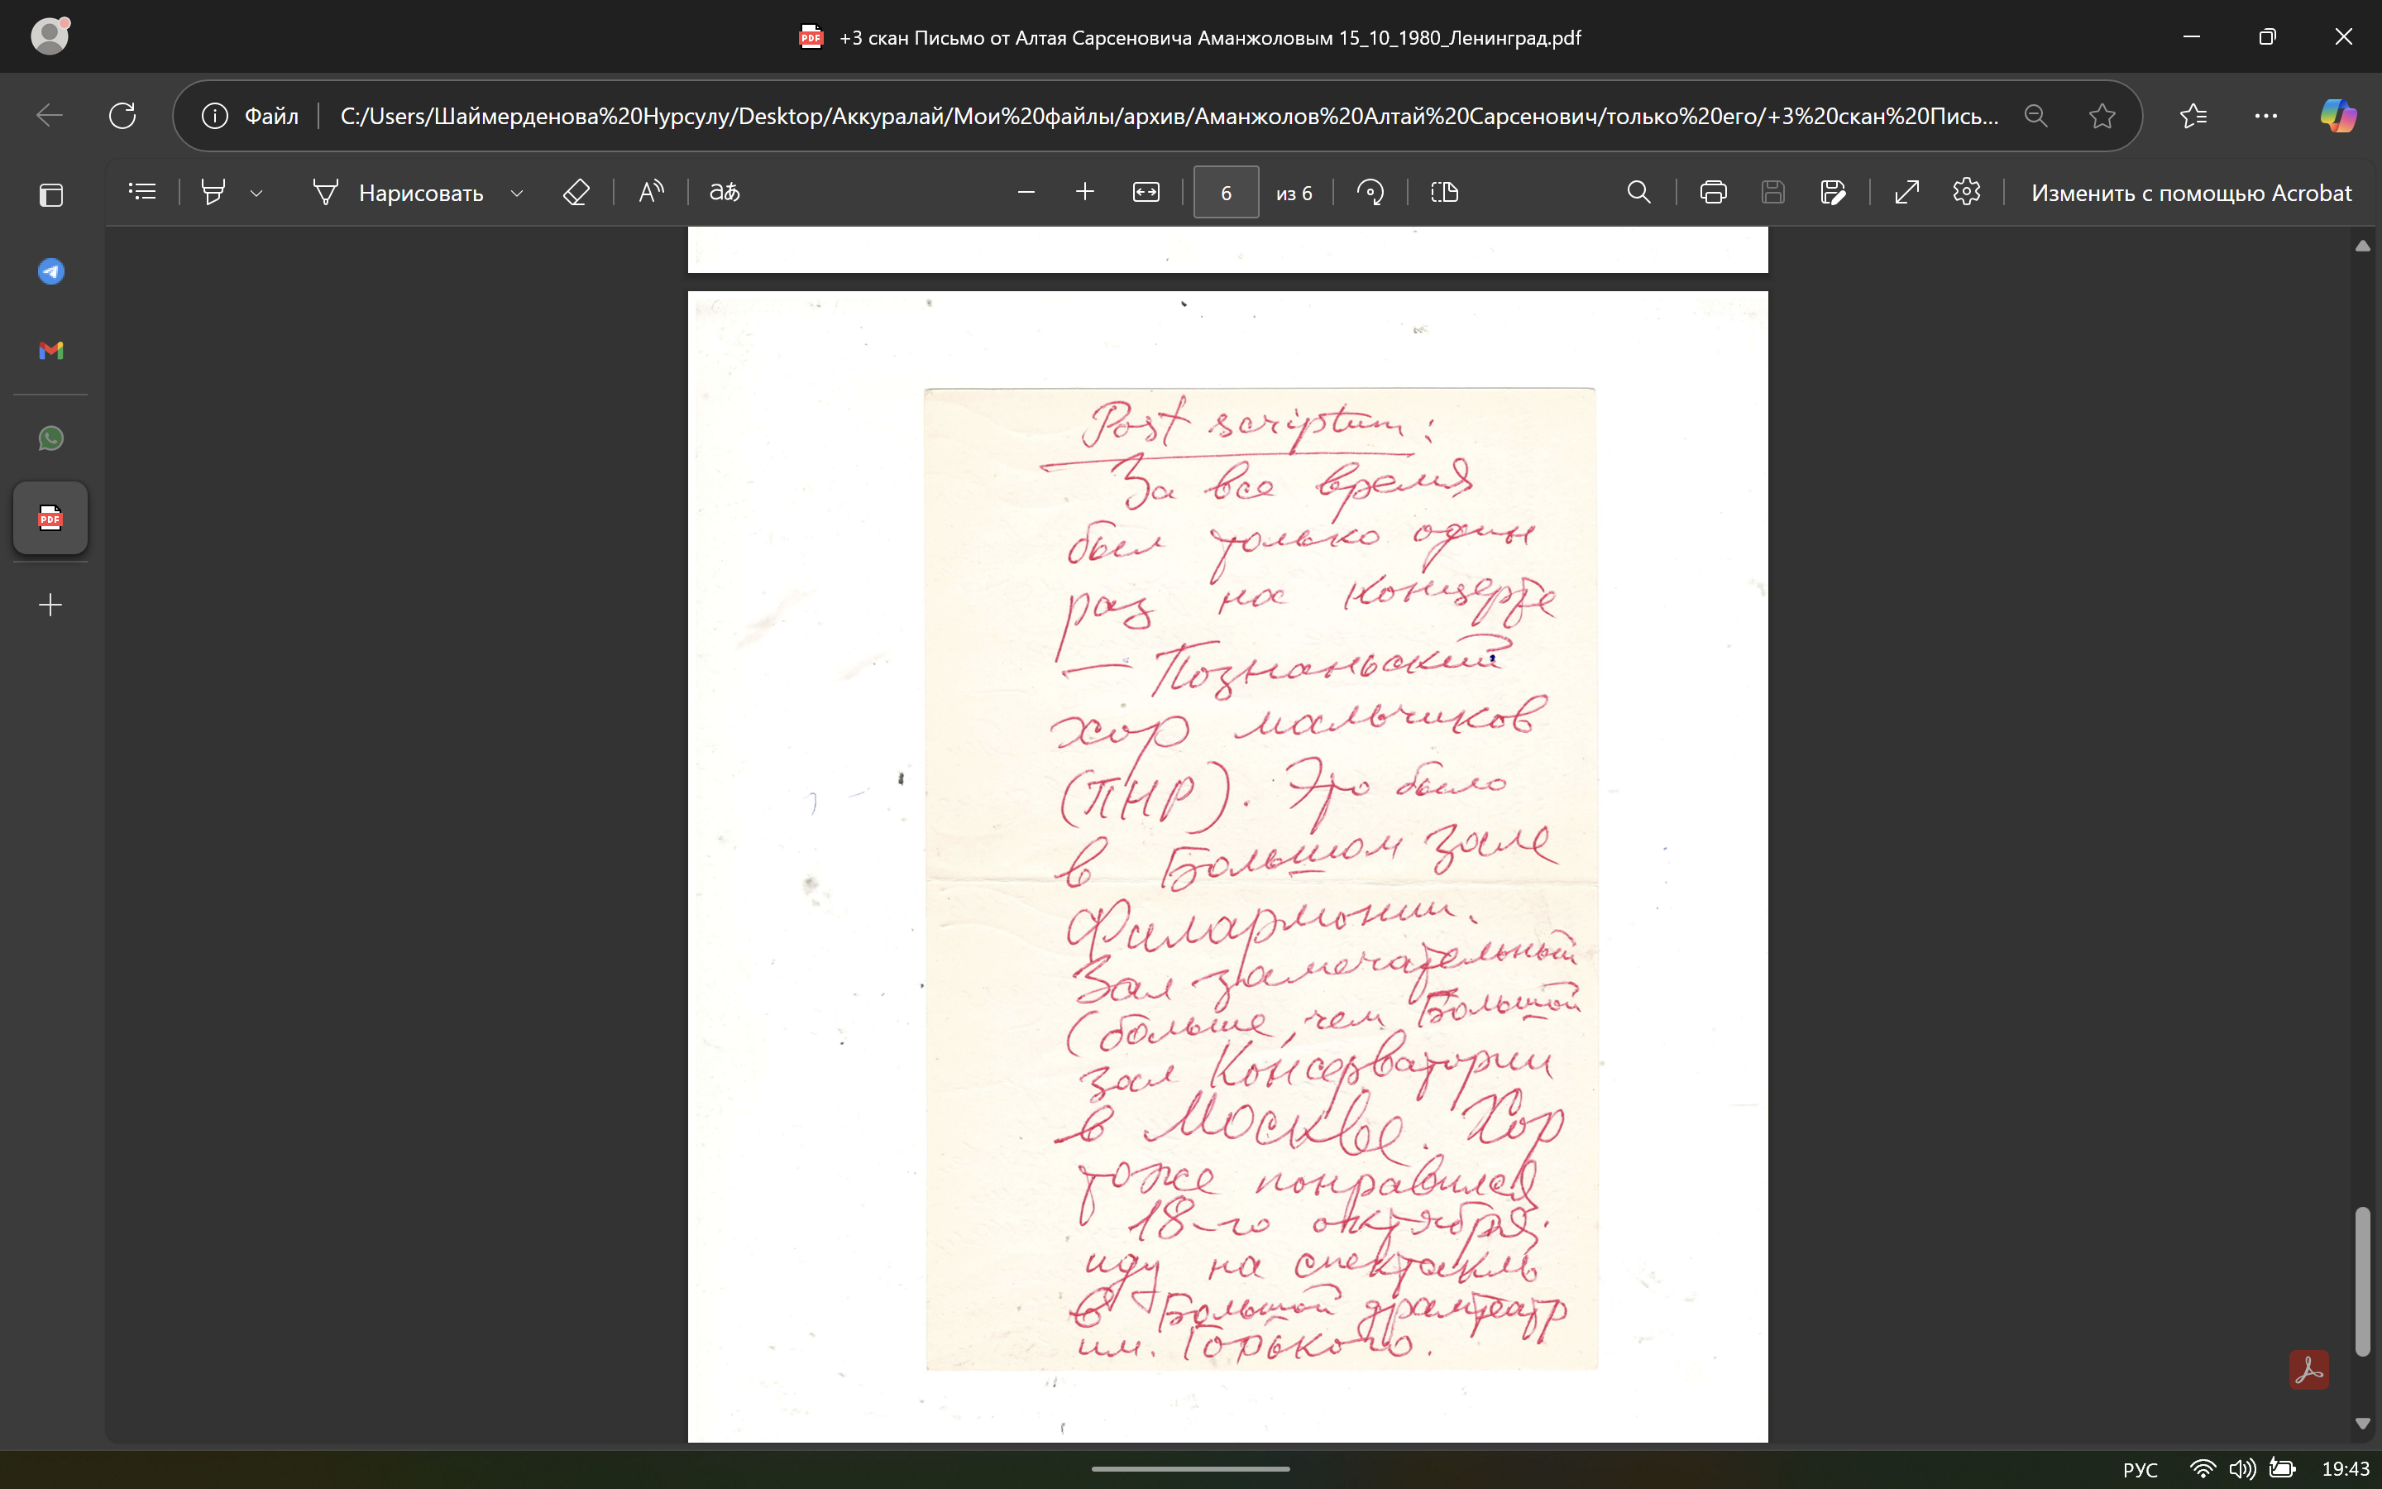 +3 скан Письмо от Алтая Сарсеновича Аманжоловым 15_10_1980_Ленинград.pdf
Файл
C:/Users/Шаймерденова%20Нурсулу/Desktop/Аккуралай/Мои%20файлы/архив/Аманжолов%20Алтай%20Сарсенович/только%20его/+3%20скан%20Пись...
Нарисовать
аあ
6 из 6
Изменить с помощью Acrobat
PDF
Post scriptum:
За все время
был только один
раз на концерте
— Познаньский
хор мальчиков
(ПНР). Это было
в Большом зале
Филармонии.
Зал замечательный
(больше, чем Большой
зал Консерватории
в Москве. Хор
тоже понравился
18-го октября
иду на спектакль
в Большой драмтеатр
им. Горького.
РУС
19:43